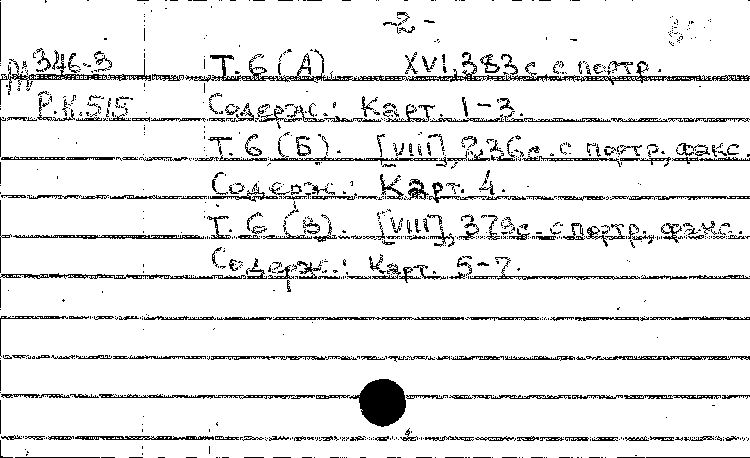 -2-
346-3 Т. 6 (А). XVI, 383 с. с портр.
Р.К.515 Содерж.: Карт. 1-3.
Т. 6 (Б). [VIII], 236 с. с портр., факс.
Содерж.: Карт. 4.
Т. 6 (В). [VIII], 379 с. с портр., факс.
Содерж.: Карт. 5-7.